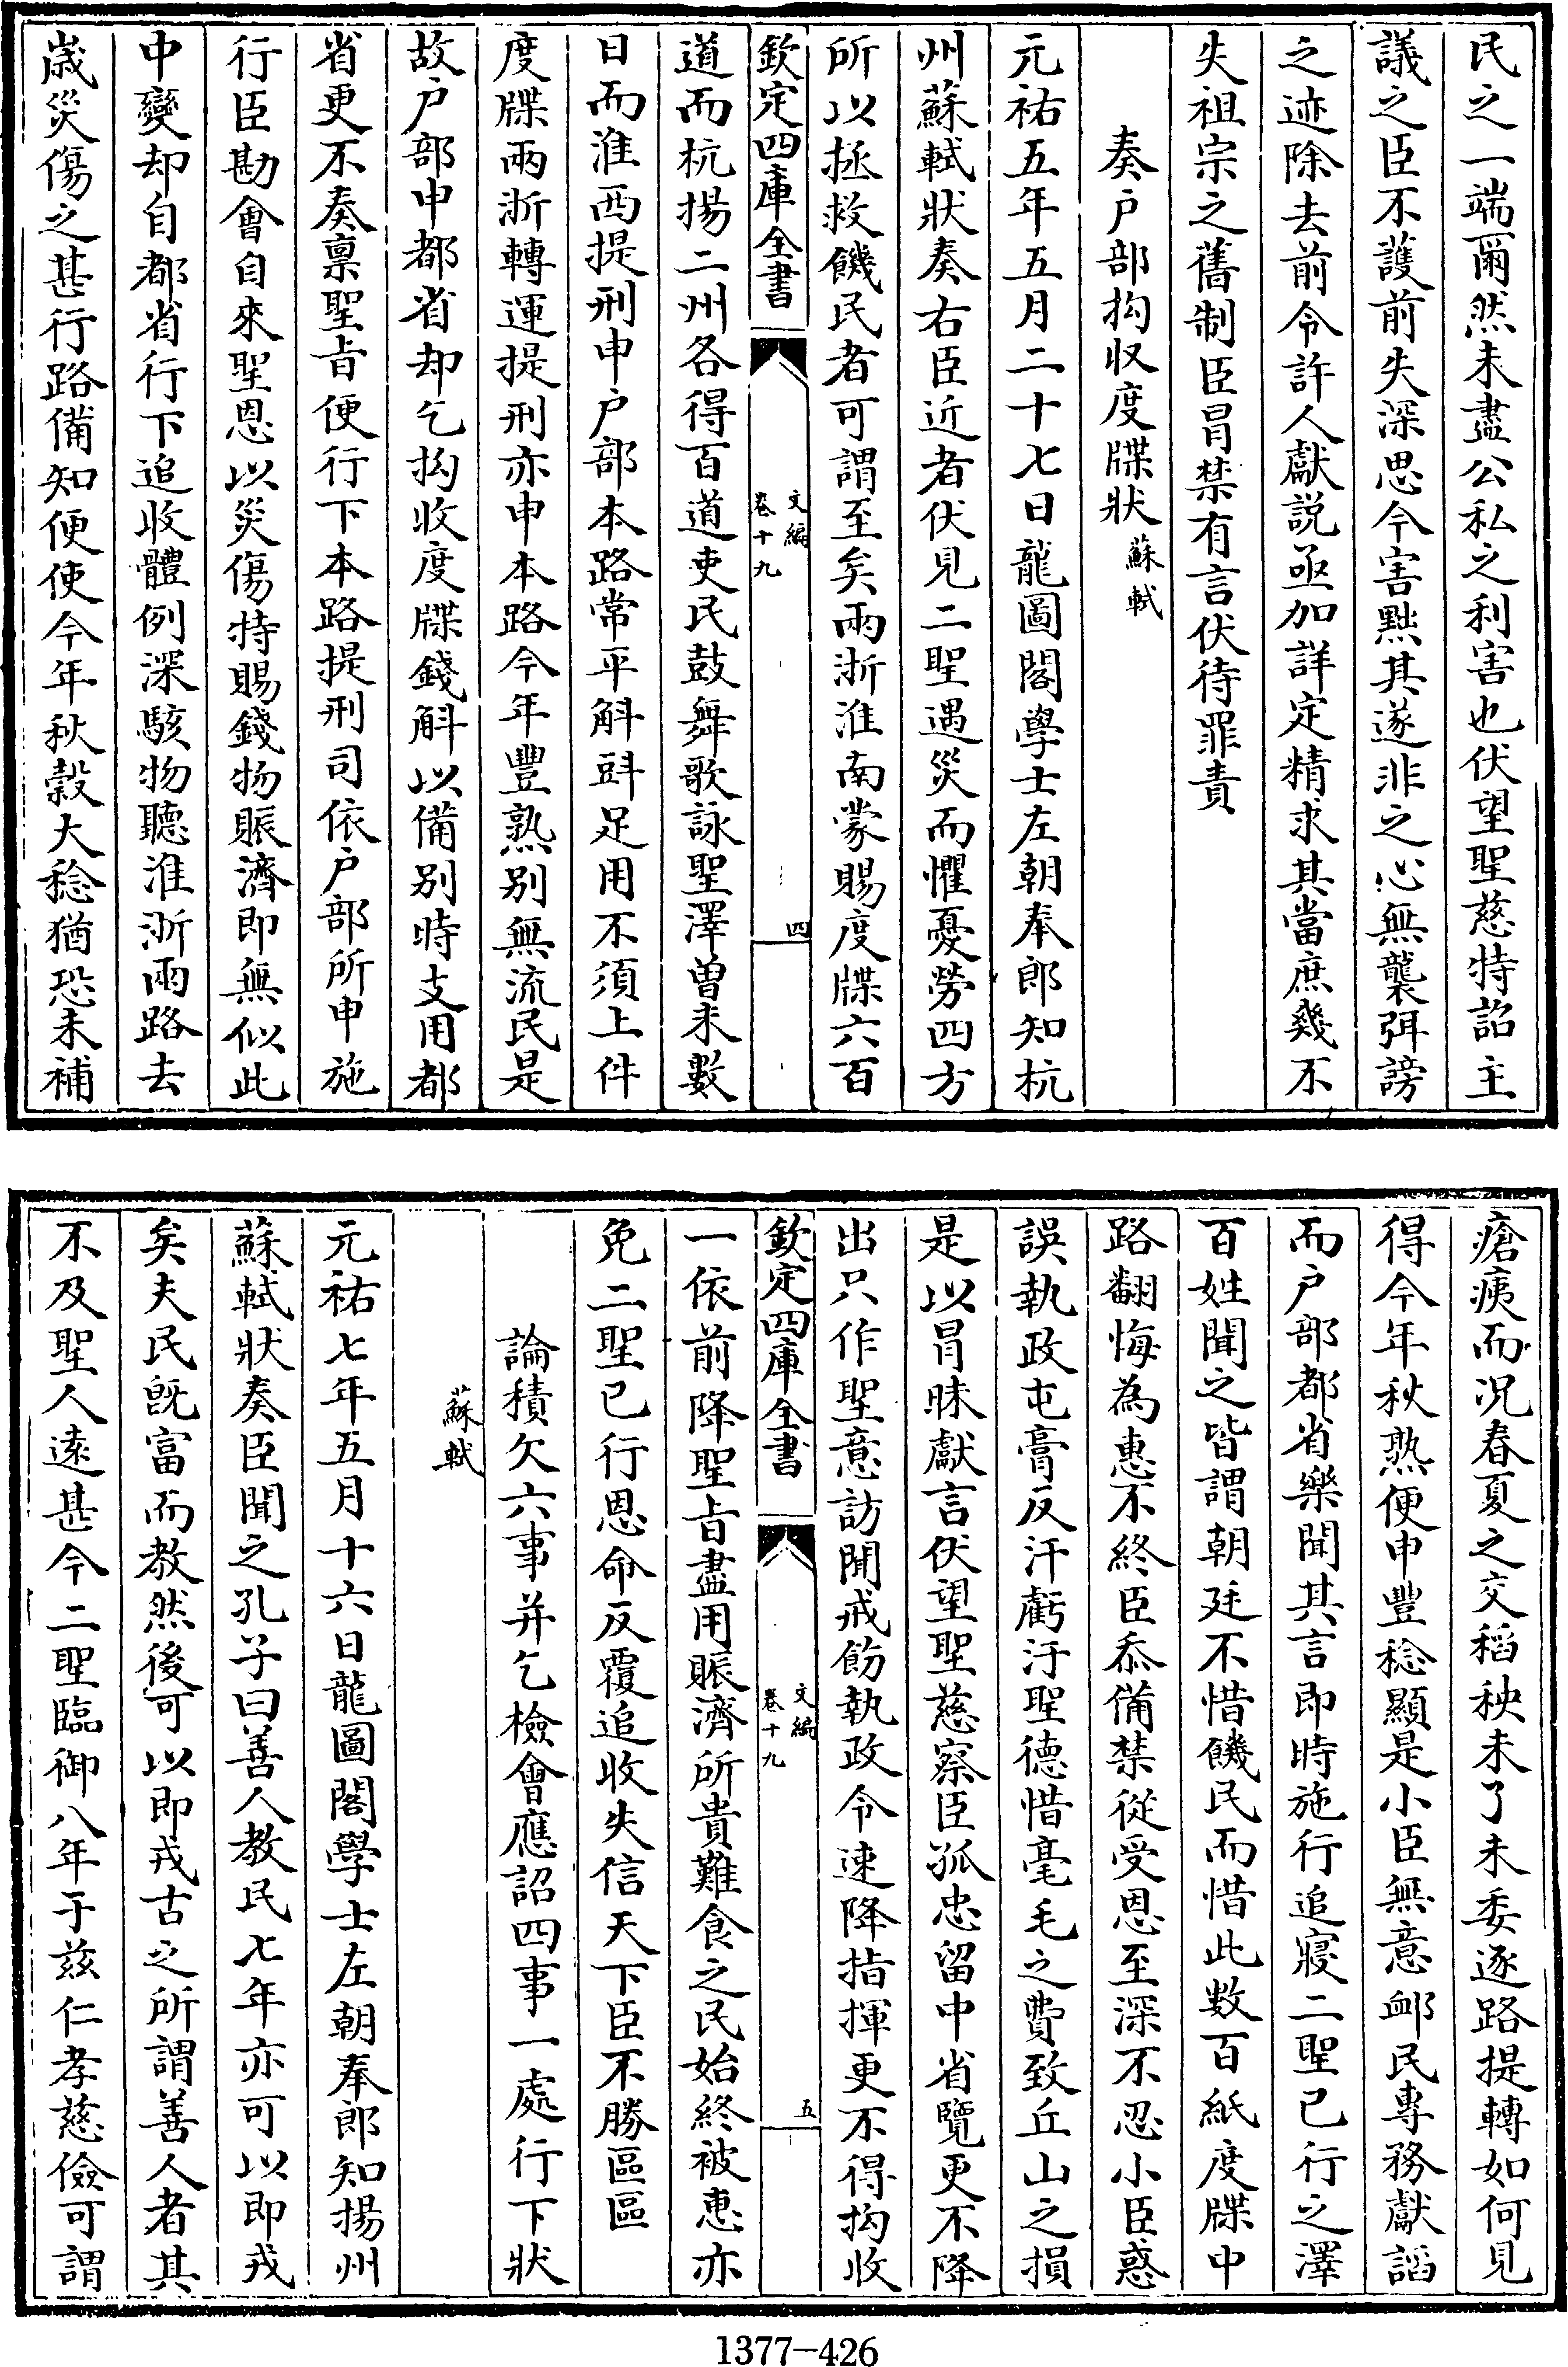 民之一端爾然未盡公私之利害也伏望聖慈特詔主
議之臣不護前失深思今害黜其遂非之心無襲弭謗
之迹除去前令許人獻説亟加詳定精求其當庶幾不
失祖宗之舊制臣冒禁有言伏待罪責
奏户部抅収度牒狀 蘇軾
元祐五年五月二十七日龍圖閣學士左朝奉郎知杭
州蘇軾狀奏右臣近者伏見二聖遇災而懼憂勞四方
所以拯救饑民者可謂至矣兩浙淮南蒙賜度牒六百
欽定四庫全書 文編 卷十九 四
道而杭揚二州各得百道吏民鼓舞歌詠聖澤曽未數
日而淮西提刑申户部本路常平斛㪷足用不須上件
度牒兩浙轉運提刑亦申本路今年豐熟别無流民是
故户部申都省却乞抅收度牒錢斛以備别時支用都
省更不奏禀聖㫖便行下本路提刑司依户部所申施
行臣勘會自來聖恩以災傷特賜錢物賑濟即無似此
中變却自都省行下追收體例深駭物聽淮浙兩路去
歲災傷之甚行路備知便使今年秋榖大稔猶恐未補
瘡痍而况春夏之交稻秧未了未委逐路提轉如何見
得今年秋熟便申豐稔顯是小臣無意䘏民專務獻謟
而户部都省樂聞其言即時施行追寢二聖已行之澤
百姓聞之皆謂朝廷不惜饑民而惜此數百紙度牒中
路翻悔為惠不終臣忝備禁從受恩至深不忍小臣惑
誤執政屯膏反汗虧汙聖德惜毫毛之費致丘山之損
是以冒昧獻言伏望聖慈察臣孤忠留中省覽更不降
出只作聖意訪聞戒飭執政令速降指揮更不得抅收
欽定四庫全書 文編 卷十九 五
一依前降聖㫖盡用賑濟所貴難食之民始終被惠亦
免二聖已行恩命反覆追收失信天下臣不勝區區
論積欠六事并乞檢會應詔四事一處行下狀
蘇軾
元祐七年五月十六日龍圖閣學士左朝奉郎知揚州
蘇軾狀奏臣聞之孔子曰善人教民七年亦可以即戎
矣夫民既富而教然後可以即戎古之所謂善人者其
不及聖人遠甚今二聖臨御八年于兹仁孝慈儉可謂
1377-426